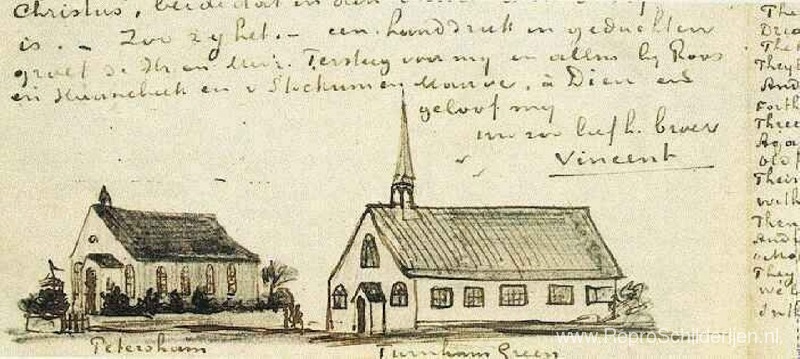 Christus,
is. – Zoo zy het. – een handdruk in gedachten
groet d. Hr en Mevr. Tersteeg voor my en allen by Roos
en Haanebeek en v Stockum en Mauve, à Dieu en
geloof my
uw zoo liefh. broer
Vincent
Petersham
Turnham Green
The
They
And
Forth
Three
Aga
old
Their
with
Then
And
They
we
www.ReproSchilderijen.nl